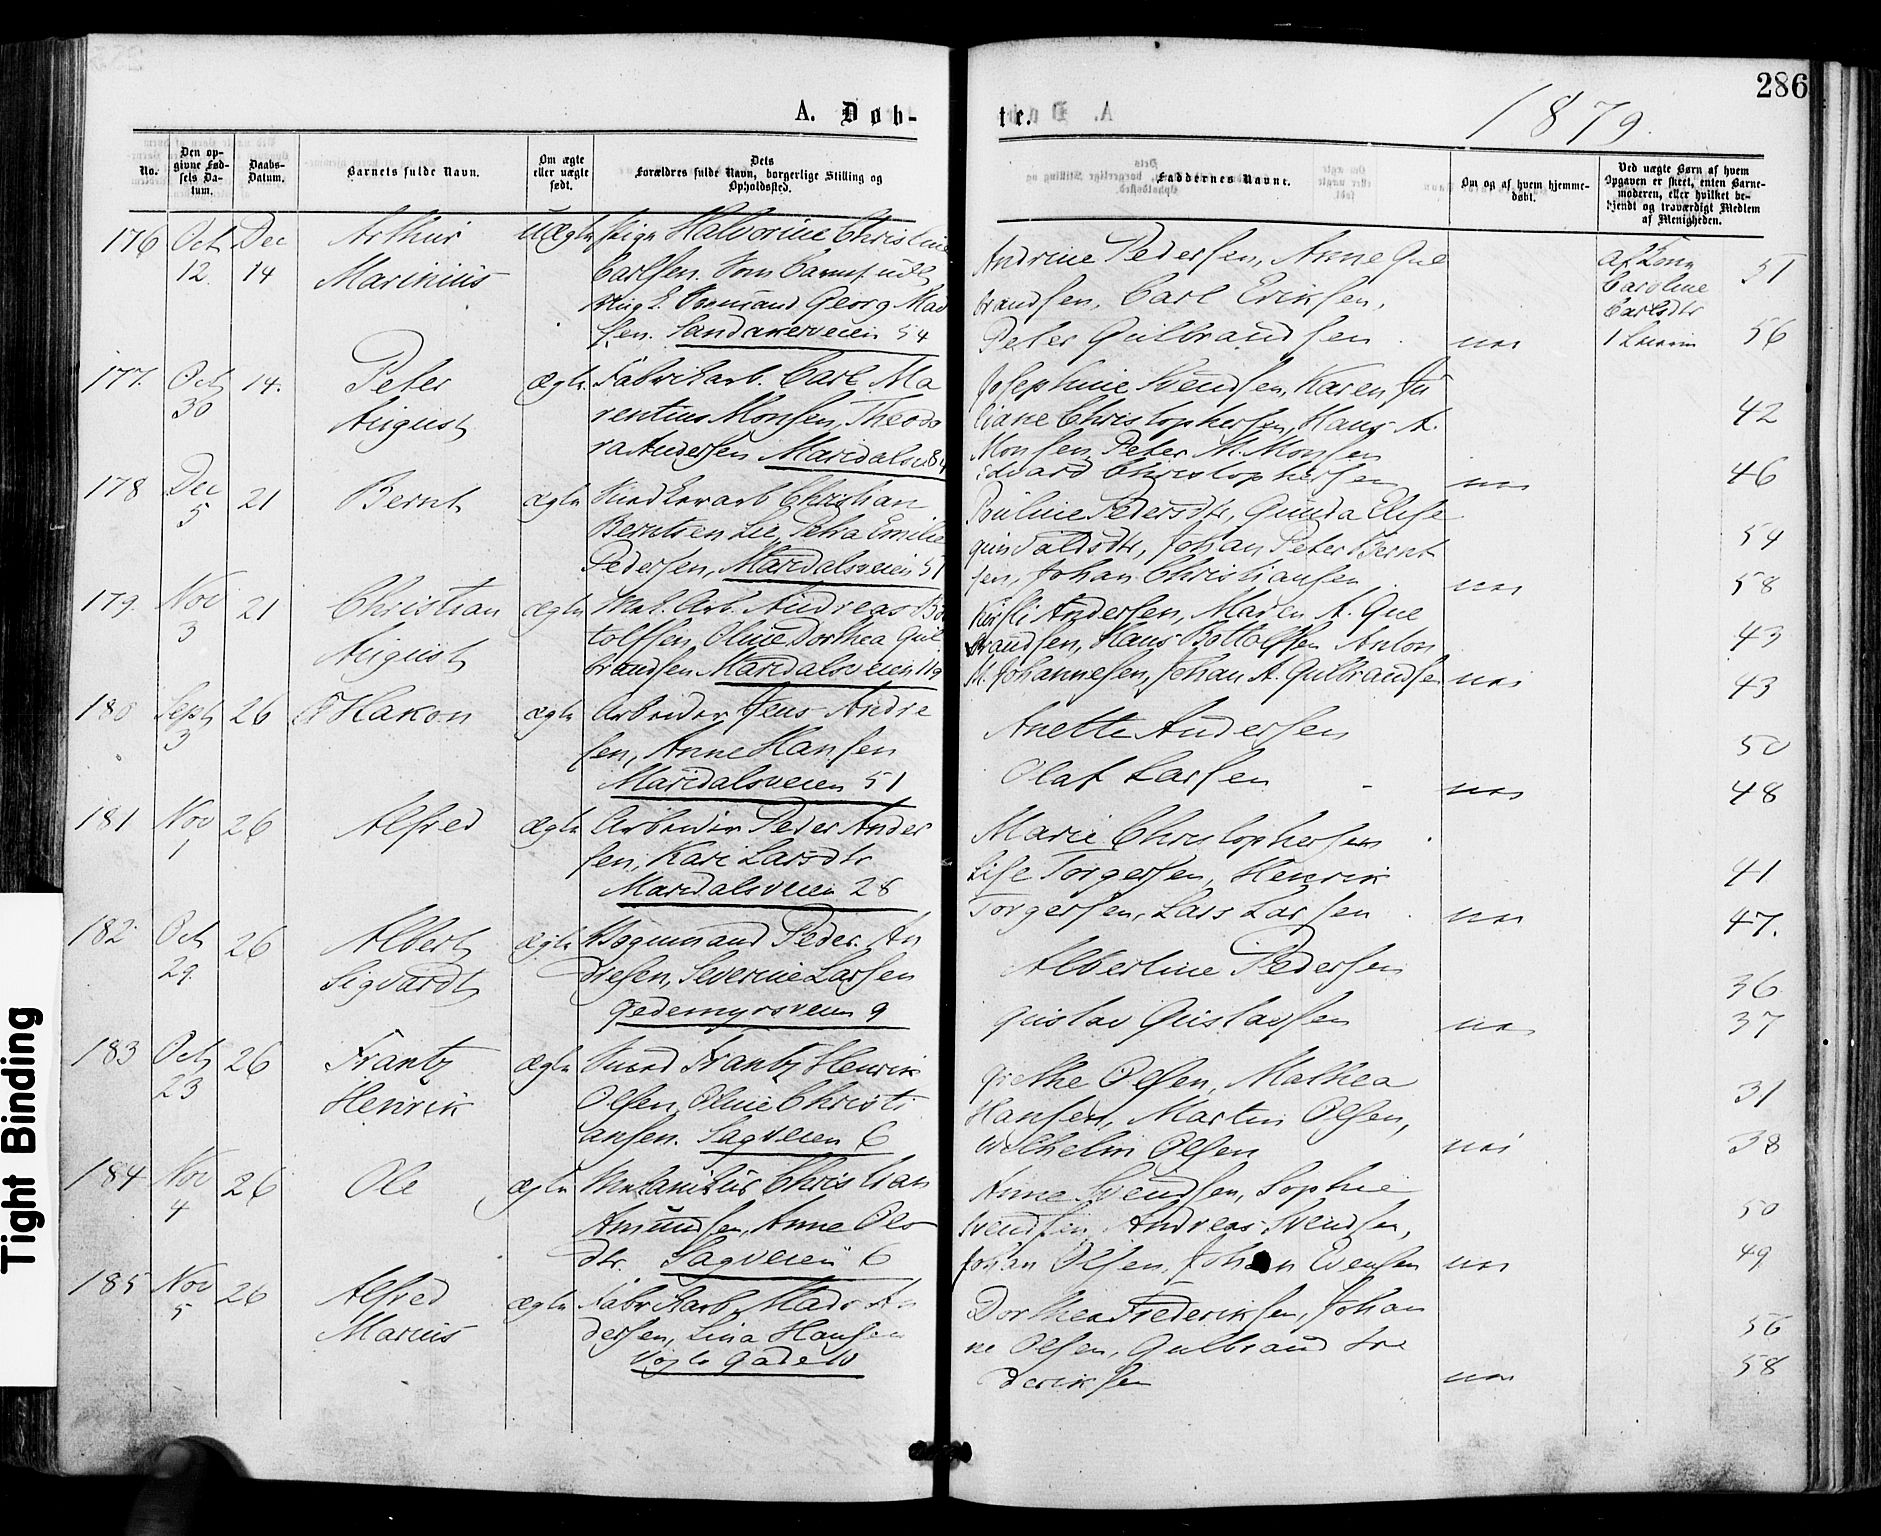 286
A. Døb-
te.
1879.
No.
Den op-
givne Fød-
sels Da-
tum.
Daabs-
Datum.
Barnets fulde Navn.
Om ægte
eller uægte
født.
Dets
Forældres fulde Navn, borgerlige Stilling og
Opholdssted.
Faddernes Navne.
Om og af hvem hjemme-
døbt.
Ved uægte Børn af hvem
Opgaven er skeet, enten Barne-
moderen, eller hvilket be-
kjendt og troværdigt Medlem
af Menigheden.
176 Oct Dec Arthur uægte Pige Halvorine Christine
12. 14 Marinius Carlsen. Som Barnef. udl
Ungk. Georg Mad
sen. Sandakerveien 54
Andrine Pedersen, Anne Gul
brandsen, Carl Eriksen,
Peter Gulbrandsen nei
af Kone
Caroline
Carlsdtr
51
56
177. Oct 14. Peter ægte Fabrikarb. Carl Ma
30 August rentius Monsen, Theodo
ra Andersen Maridalsv 84
Josephine Svendsen, Karen Ju
liane Christophersen, Hans A.
Monsen, Peter M. Monsen
Edvard Christophersen nei
42
46
178 Dec 21 Bernt ægte Snedkerarb Christian
5 Berntsen Lie, Petra Emilie
Pedersen, Maridalsveien 51
Pauline Pedersdtr, Gunda Elise
Gunvaldsdtr, Johan Peter Bernt
sen, Johan Christiansen nei
54
58
179. Nov 21 Christian ægte Mek. Arb. Andreas Bo
3 August tolfsen, Oline Dorthea Gul
brandsen Maridalsveien 119
Kirsti Andersen, Maren A. Gul
brandsen, Hans Bottolfsen Anton
M. Johannesen, Johan A. Gulbrandsen nei
43
43
180 Sept 26 Hakon ægte Arbeider Jens Andre
3 sen, Anne Hansen
Maridalsveien 51
Anette Andersen
Olaf Larsen nei
50
48
181 Nov 26 Alfred ægte Arbeider Peder Ander
1 sen, Kari Larsdtr
Maridalsveien 28
Marie Christophersen
Lise Torgersen, Henrik
Torgersen, Lars Larsen nei
41
47.
182 Oct 26 Albert ægte Vognmand Peder An
29. Sigvardt dresen, Severine Larsen
Gedemyrsveien 9
Albertine Pedersen
Gustav Gustavsen nei
36
37
183 Oct 26 Frantz ægte Snedk Frantz Henrik
23 Henrik Olsen, Oline Christi
ansen. Sagveien 6
Grethe Olsen, Mathea
Hansen, Martin Olsen,
Wilhelm Olsen nei
31
38
184 Nov 26 Ole ægte Mekanikus Christian
4 Amundsen, Anne Ols
dtr. Sagveien 6
Anne Svendsen, Sophie
Svendsen, Andreas Svendsen,
Johan Olsen, Johan Evensen nei
50
49
185 Nov 26 Alfred ægte Fabrikarb. Mads An
5 Marius dersen, Lina Hansen
Vogts Gade 10
Dorthea Frederiksen, Johan
ne Olsen, Gulbrand Fre
deriksen nei
56
58
Tight Binding